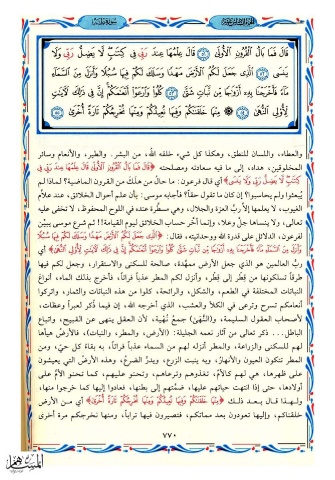 الجزء السادس عشر
سورة طه
قَالَ فَمَا بَالُ ٱلْقُرُونِ ٱلْأُولَىٰ ﴿٥١﴾ قَالَ عِلْمُهَا عِندَ رَبِّى فِى كِتَٰبٍ لَّا يَضِلُّ رَبِّى وَلَا
يَنسَى ﴿٥٢﴾ ٱلَّذِى جَعَلَ لَكُمُ ٱلْأَرْضَ مَهْدًا وَسَلَكَ لَكُمْ فِيهَا سُبُلًا وَأَنزَلَ مِنَ ٱلسَّمَآءِ
مَآءً فَأَخْرَجْنَا بِهِۦٓ أَزْوَٰجًا مِّن نَّبَاتٍ شَتَّىٰ ﴿٥٣﴾ كُلُوا۟ وَٱرْعَوْا۟ أَنْعَٰمَكُمْ إِنَّ فِى ذَٰلِكَ لَءَايَٰتٍ
لِّأُو۟لِى ٱلنُّهَىٰ ﴿٥٤﴾ ۞ مِنْهَا خَلَقْنَٰكُمْ وَفِيهَا نُعِيدُكُمْ وَمِنْهَا نُخْرِجُكُمْ تَارَةً أُخْرَىٰ ﴿٥٥﴾
والعطاء، واللسان للنطق، وهكذا كل شيء خلقه الله، من البشر. والطير، والأنعام وسائر
المخلوقين، هداه، إلى ما فيه سعادته ومصلحته ﴿قَالَ فَمَا بَالُ ٱلْقُرُونِ ٱلْأُولَىٰ قَالَ عِلْمُهَا عِندَ رَبِّى فِى
كِتَٰبٍ لَّا يَضِلُّ رَبِّى وَلَا يَنسَى﴾ أي قال فرعون: ما حالُ من هلكَ من القرون الماضية؟ لماذا لم
يُبعثوا ولم يحاسبوا؟ إن كان ما تقول حقاً؟ فأجابه موسى: بأن علم أحوال الخلائق، عند علاَّم
الغيوب، لا يعلمها إلاَّ ربُّ العزة والجلال، وهي مسطَّرة عنده في اللوح المحفوظ، لا تخفى عليه
تعالى، ولا ينساها جلَّ وعلا، وإنما أخَّر حساب الخلائق ليوم القيامة!! ثم شرع موسى يبيِّن
لفرعون، الدلائل على قدرة الله ووحدانيته، فقال: ﴿ٱلَّذِى جَعَلَ لَكُمُ ٱلْأَرْضَ مَهْدًا وَسَلَكَ لَكُمْ فِيهَا سُبُلًا وَأَنزَلَ مِنَ ٱلسَّمَآءِ
مَآءً فَأَخْرَجْنَا بِهِۦٓ أَزْوَٰجًا مِّن نَّبَاتٍ شَتَّىٰ كُلُوا۟ وَٱرْعَوْا۟ أَنْعَٰمَكُمْ إِنَّ فِى ذَٰلِكَ لَءَايَٰتٍ لِّأُو۟لِى ٱلنُّهَىٰ﴾ أي
ربُّ العالمين هو الذي جعل الأرض ممهَّدة، صالحة للسكنى والاستقرار، وجعل لكم فيها
طرقاً تسلكونها من قُطر إلى قُطر، وأنزل لكم المطر عذباً فراتاً، فأخرج بذلك الماء، أنواع
النباتات المختلفة في الطعم، والشكل، والرائحة، كلوا من هذه النباتات والثمار، واتركوا
أنعامكم تسرح وترعى في الكلأ والعشب، الذي أخرجه الله، إن فيما ذُكر لعبراً وعظات،
لأصحاب العقول السليمة، و(النُّهَى) جمعُ نُهْية، لأن العقل ينهى عن القبيح، واتباع
الباطل... ذكر تعالى من آثار نعمه الجليلة: (الأرض، والمطر، والنبات)، فالأرضُ هيأها
لهم للسكنى والزراعة، والمطر أنزله لهم من السماء عذباً فراتاً، به بقاءُ كل حيٍّ، ومن
المطر تتكون العيون والأنهارُ، وبه ينبت الزرع، ويدرُّ الضرعُ، وهذه الأرض التي يعيشون
على ظهرها، هي لهم كالأمِّ، تغذوهم وترعاهم، وتحنو عليهم، كما تحنو الأمُّ على
أولادها، حتى إذا انتهت حياتهم عليها، ضمَّتهم إلى بطنها، فعادوا إليها كما خرجوا منها،
ولهذا قال بعد ذلك ﴿مِنْهَا خَلَقْنَٰكُمْ وَفِيهَا نُعِيدُكُمْ وَمِنْهَا نُخْرِجُكُمْ تَارَةً أُخْرَىٰ﴾ أي من الأرض
خلقناكم، وإليها تعودون بعد مماتكم، فتصيرون فيها تراباً، ومنها نخرجكم مرة أخرى
٧٧٠